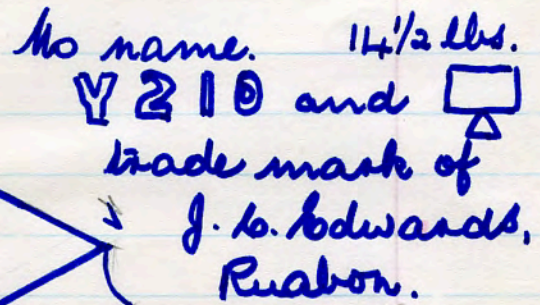 No name. 14 1/2 lbs.
Y 2 1 0 and
trade mark of
J. C. Edwards,
Ruabon.